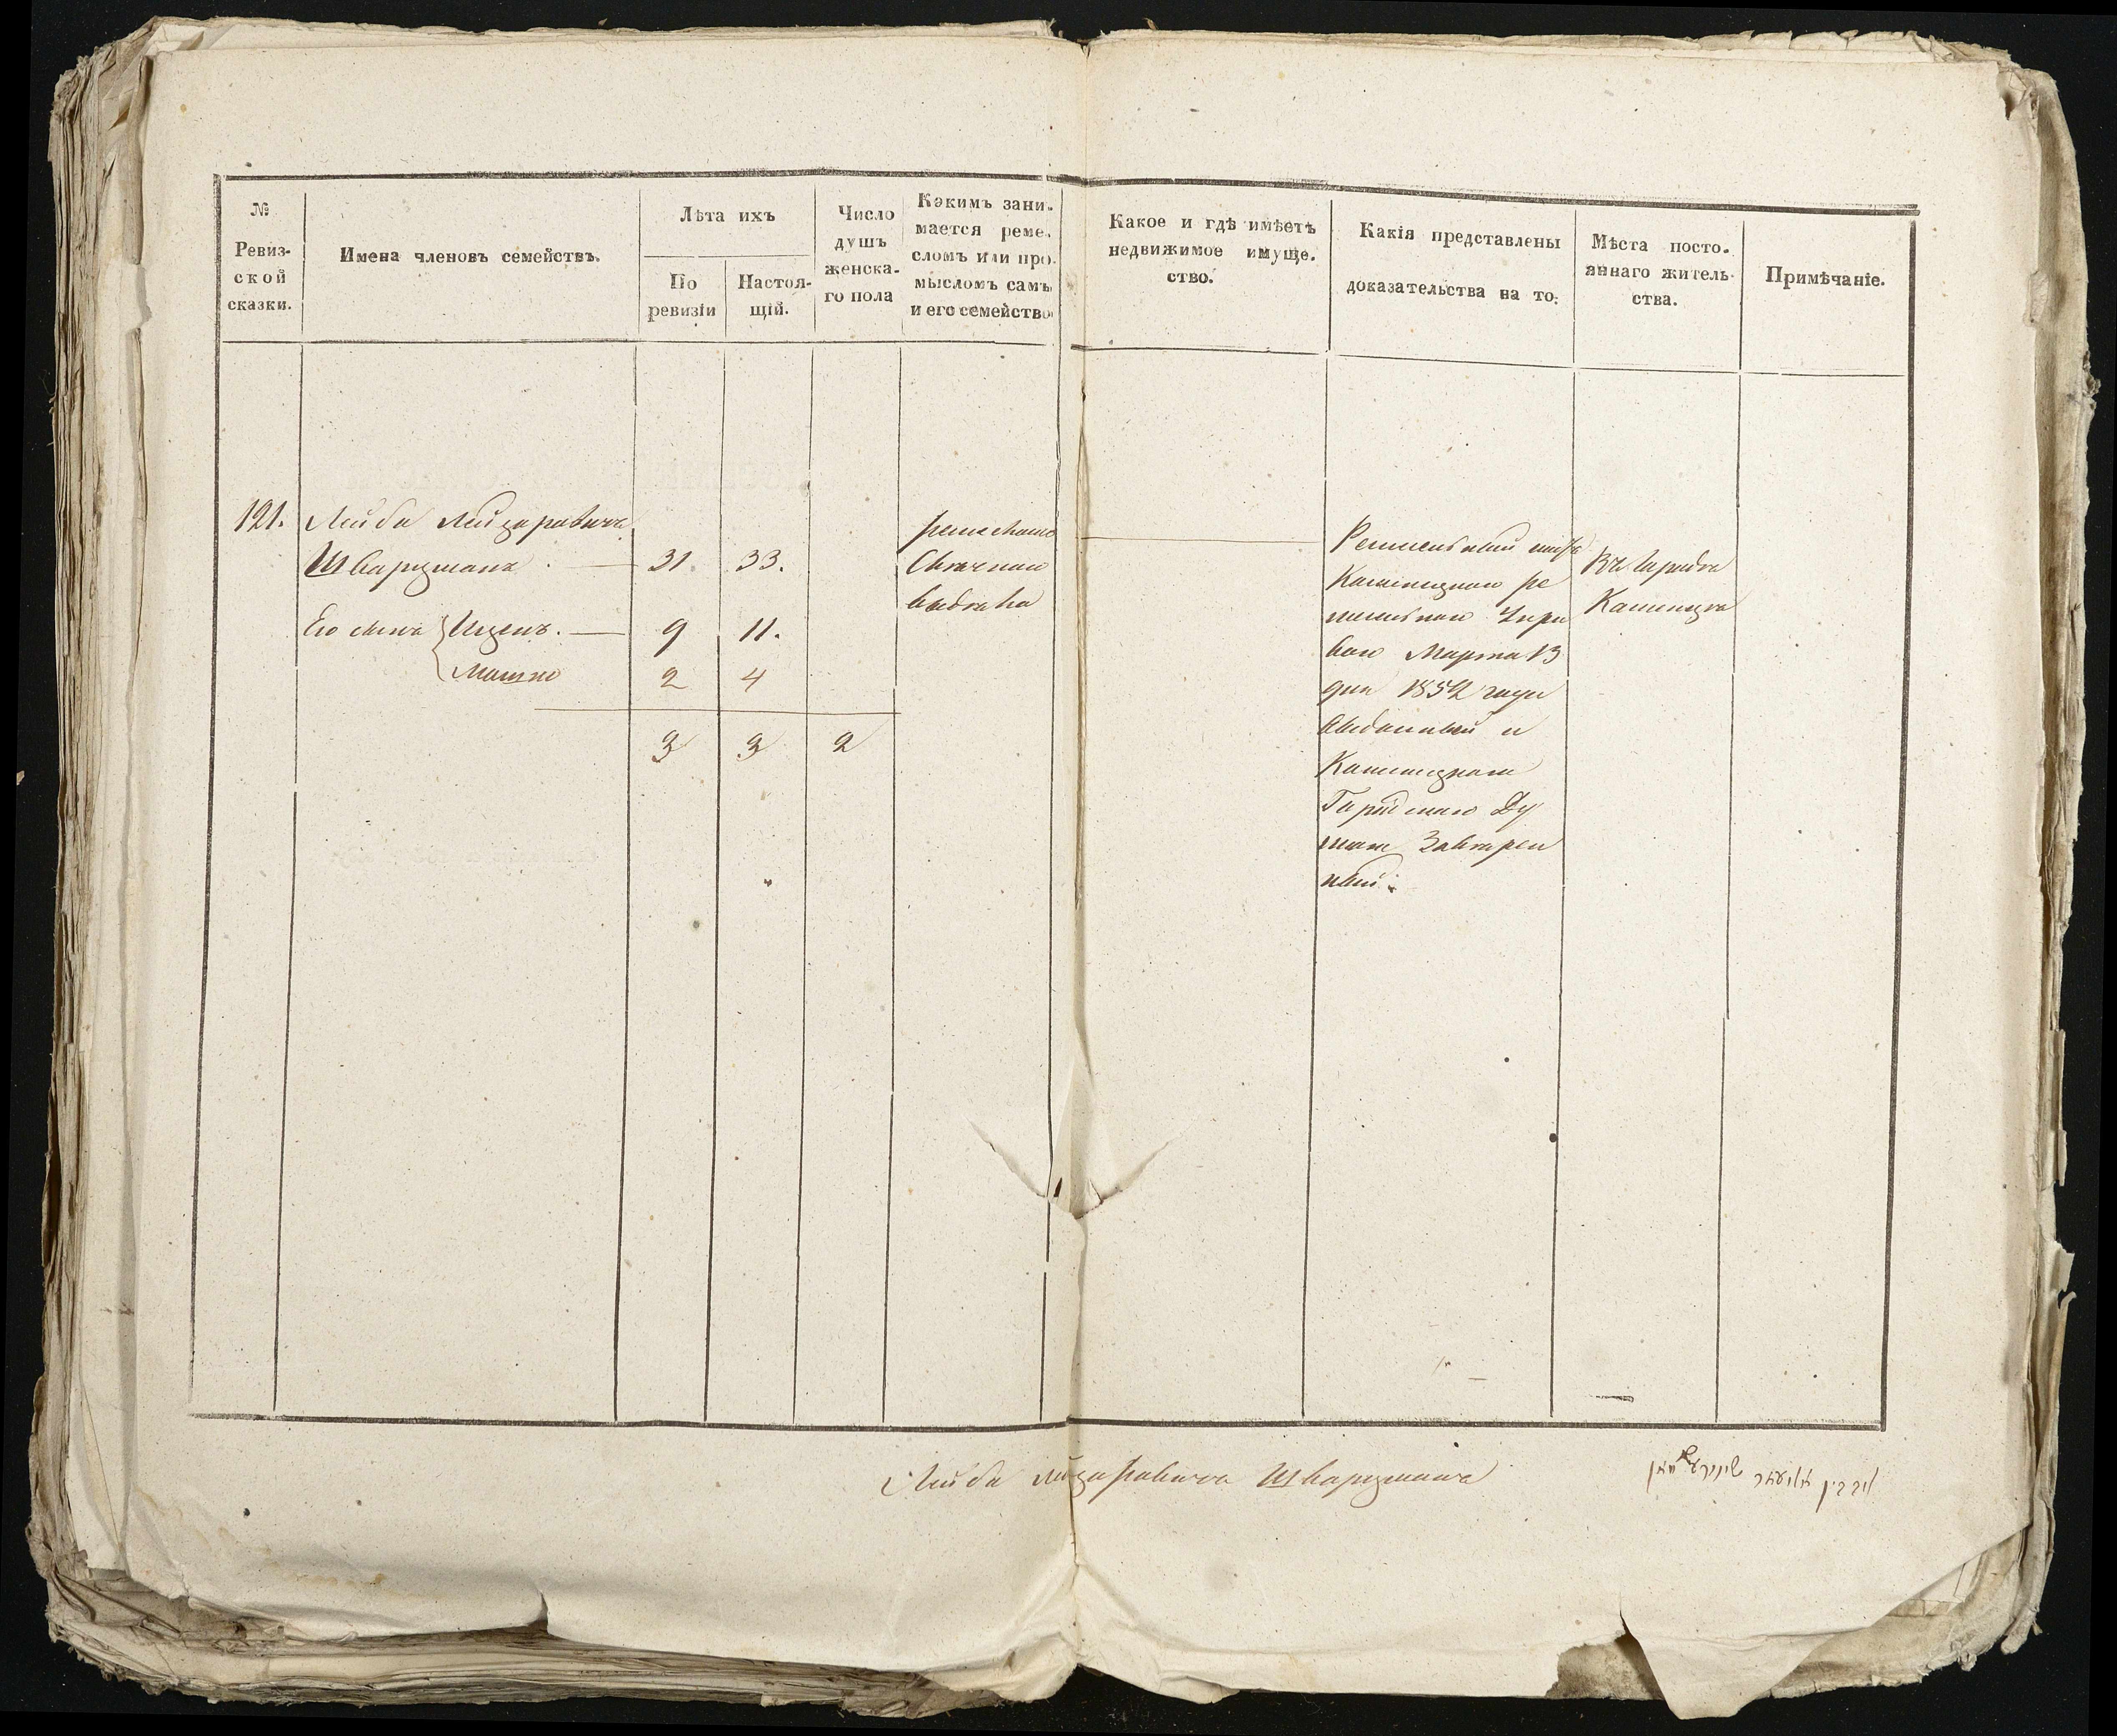 №
Ревиз-
ской
сказки.
Имена членовъ семействъ.
Лѣта ихъ
По
ревизіи
Настоя-
щій.
Число
душъ
женска-
го пола
Какимъ зани-
мается реме-
сломъ или про-
мысломъ самъ
и его семейство
Какое и гдѣ имѣетъ
недвижимое имуще-
ство.
Какія представлены
доказательства на то:
Мѣста посто-
яннаго житель-
ства.
Примѣчаніе.
121. Лейба Лейзаровичъ
Шварцманъ . — 31. 33.
Его сынъ Иценъ. — 9 11.
Мошко 2 4
3 3 2
ремеслом
Каменецкаго ре
месленаго
Марта 13
дня 1852 года
выданный и
Каменецкаго
Городскаго Ду
мою Завѣрен
ный.
Въ городѣ
Каменцѣ
Лейба Лейзаровичъ Шварцманъ